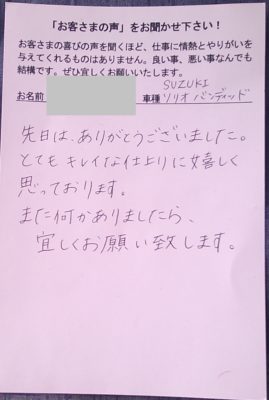 「お客さまの声」をお聞かせ下さい！
お客さまの喜びの声を聞くほど、仕事に情熱とやりがいを
与えてくれるものはありません。良い事、悪い事なんでも
結構です。ぜひ宜しくお願いいたします。
お名前 車種 SUZUKI ソリオ バンディッド
先日は、ありがとうございました。
とてもキレイな仕上りに嬉しく
思っております。
また何かありましたら、
宜しくお願い致します。